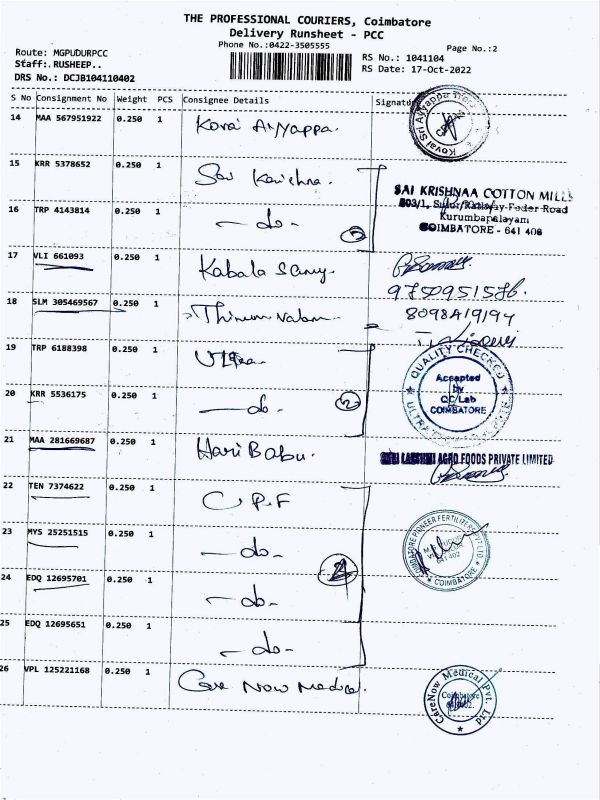 THE PROFESSIONAL COURIERS, Coimbatore
Delivery Runsheet - PCC
Phone No.:0422-3505555
Page No.:2
Route: MGPUDURPCC
Staff:.RUSHEEP..
DRS No.: DCJB104110402
RS No.: 1041104
RS Date: 17-Oct-2022
S No Consignment No Weight PCS Consignee Details Signatu
14 MAA 567951922 0.250 1 Kovai Ayyappa.
Kovai Sri Ayyappa
15 KRR 5378652 0.250 1 Sai Krishna.
SAI KRISHNAA COTTON MILLS
803/1, Railway-Feder Road
Kurumbapalayam
COIMBATORE - 641 406
16 TRP 4143814 0.250 1 - do -
17 VLI 661093 0.250 1 Kabala Samy.
9750951576.
18 SLM 305469567 0.250 1
8098419194
19 TRP 6188398 0.250 1 Ultra.
QUALITY CHECKED
Accepted
by
QC Lab
COIMBATORE
20 KRR 5536175 0.250 1 - do - 2
21 MAA 281669687 0.250 1 Hari Babu.
LAKSHMI AGRO FOODS PRIVATE LIMITED
22 TEN 7374622 0.250 1 C P.F
COIMBATORE PIONEER FERTILIZERS PVT LTD
641 402
COIMBATORE
23 MYS 25251515 0.250 1 - do -
24 EDQ 12695701 0.250 1 - do -
25 EDQ 12695651 0.250 1 - do -
26 VPL 125221168 0.250 1 Care Now Medical.
CareNow Medical Pvt.
Coimbatore